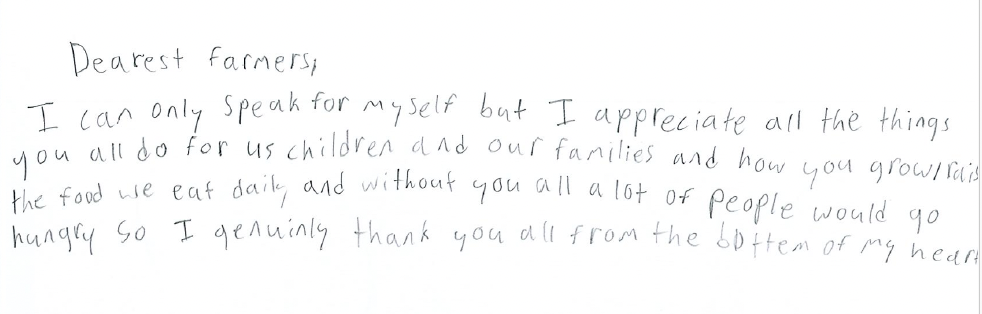 Dearest farmers,
I can only speak for myself but I appreciate all the things
you all do for us children and our families and how you grow/rais
the food we eat daily and without you all a lot of people would go
hungry so I genuinly thank you all from the bottem of my heart